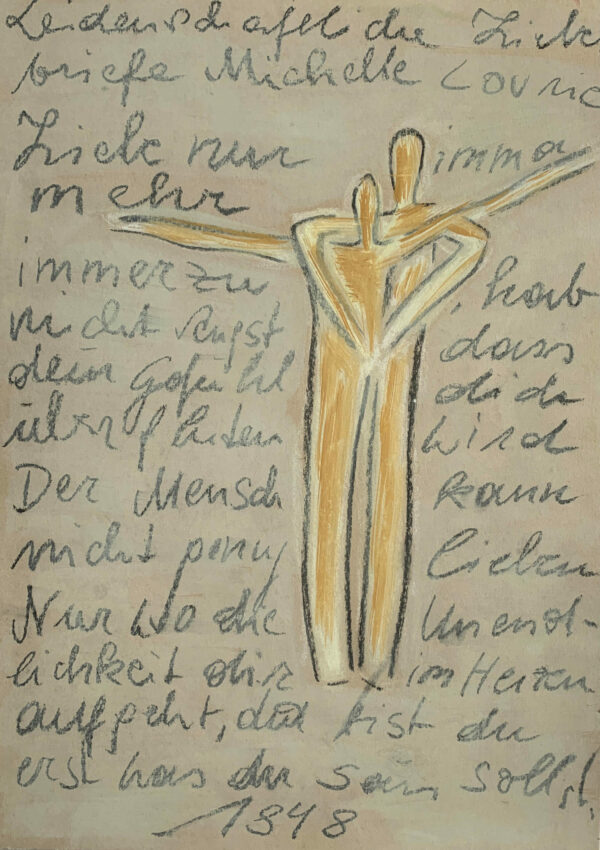 Leidenschaftliche Liebes
briefe Michelle Lovric
Liebe nur imma
mehr
immerzu
, hab
nicht Angst dass
dein Gefühl dich
überfluten wird
Der Mensch kann
nicht genug lieben
Nur wo die Unend-
lichkeit dir im Herzen
aufgeht, da bist du
erst was du sein sollst.
1848